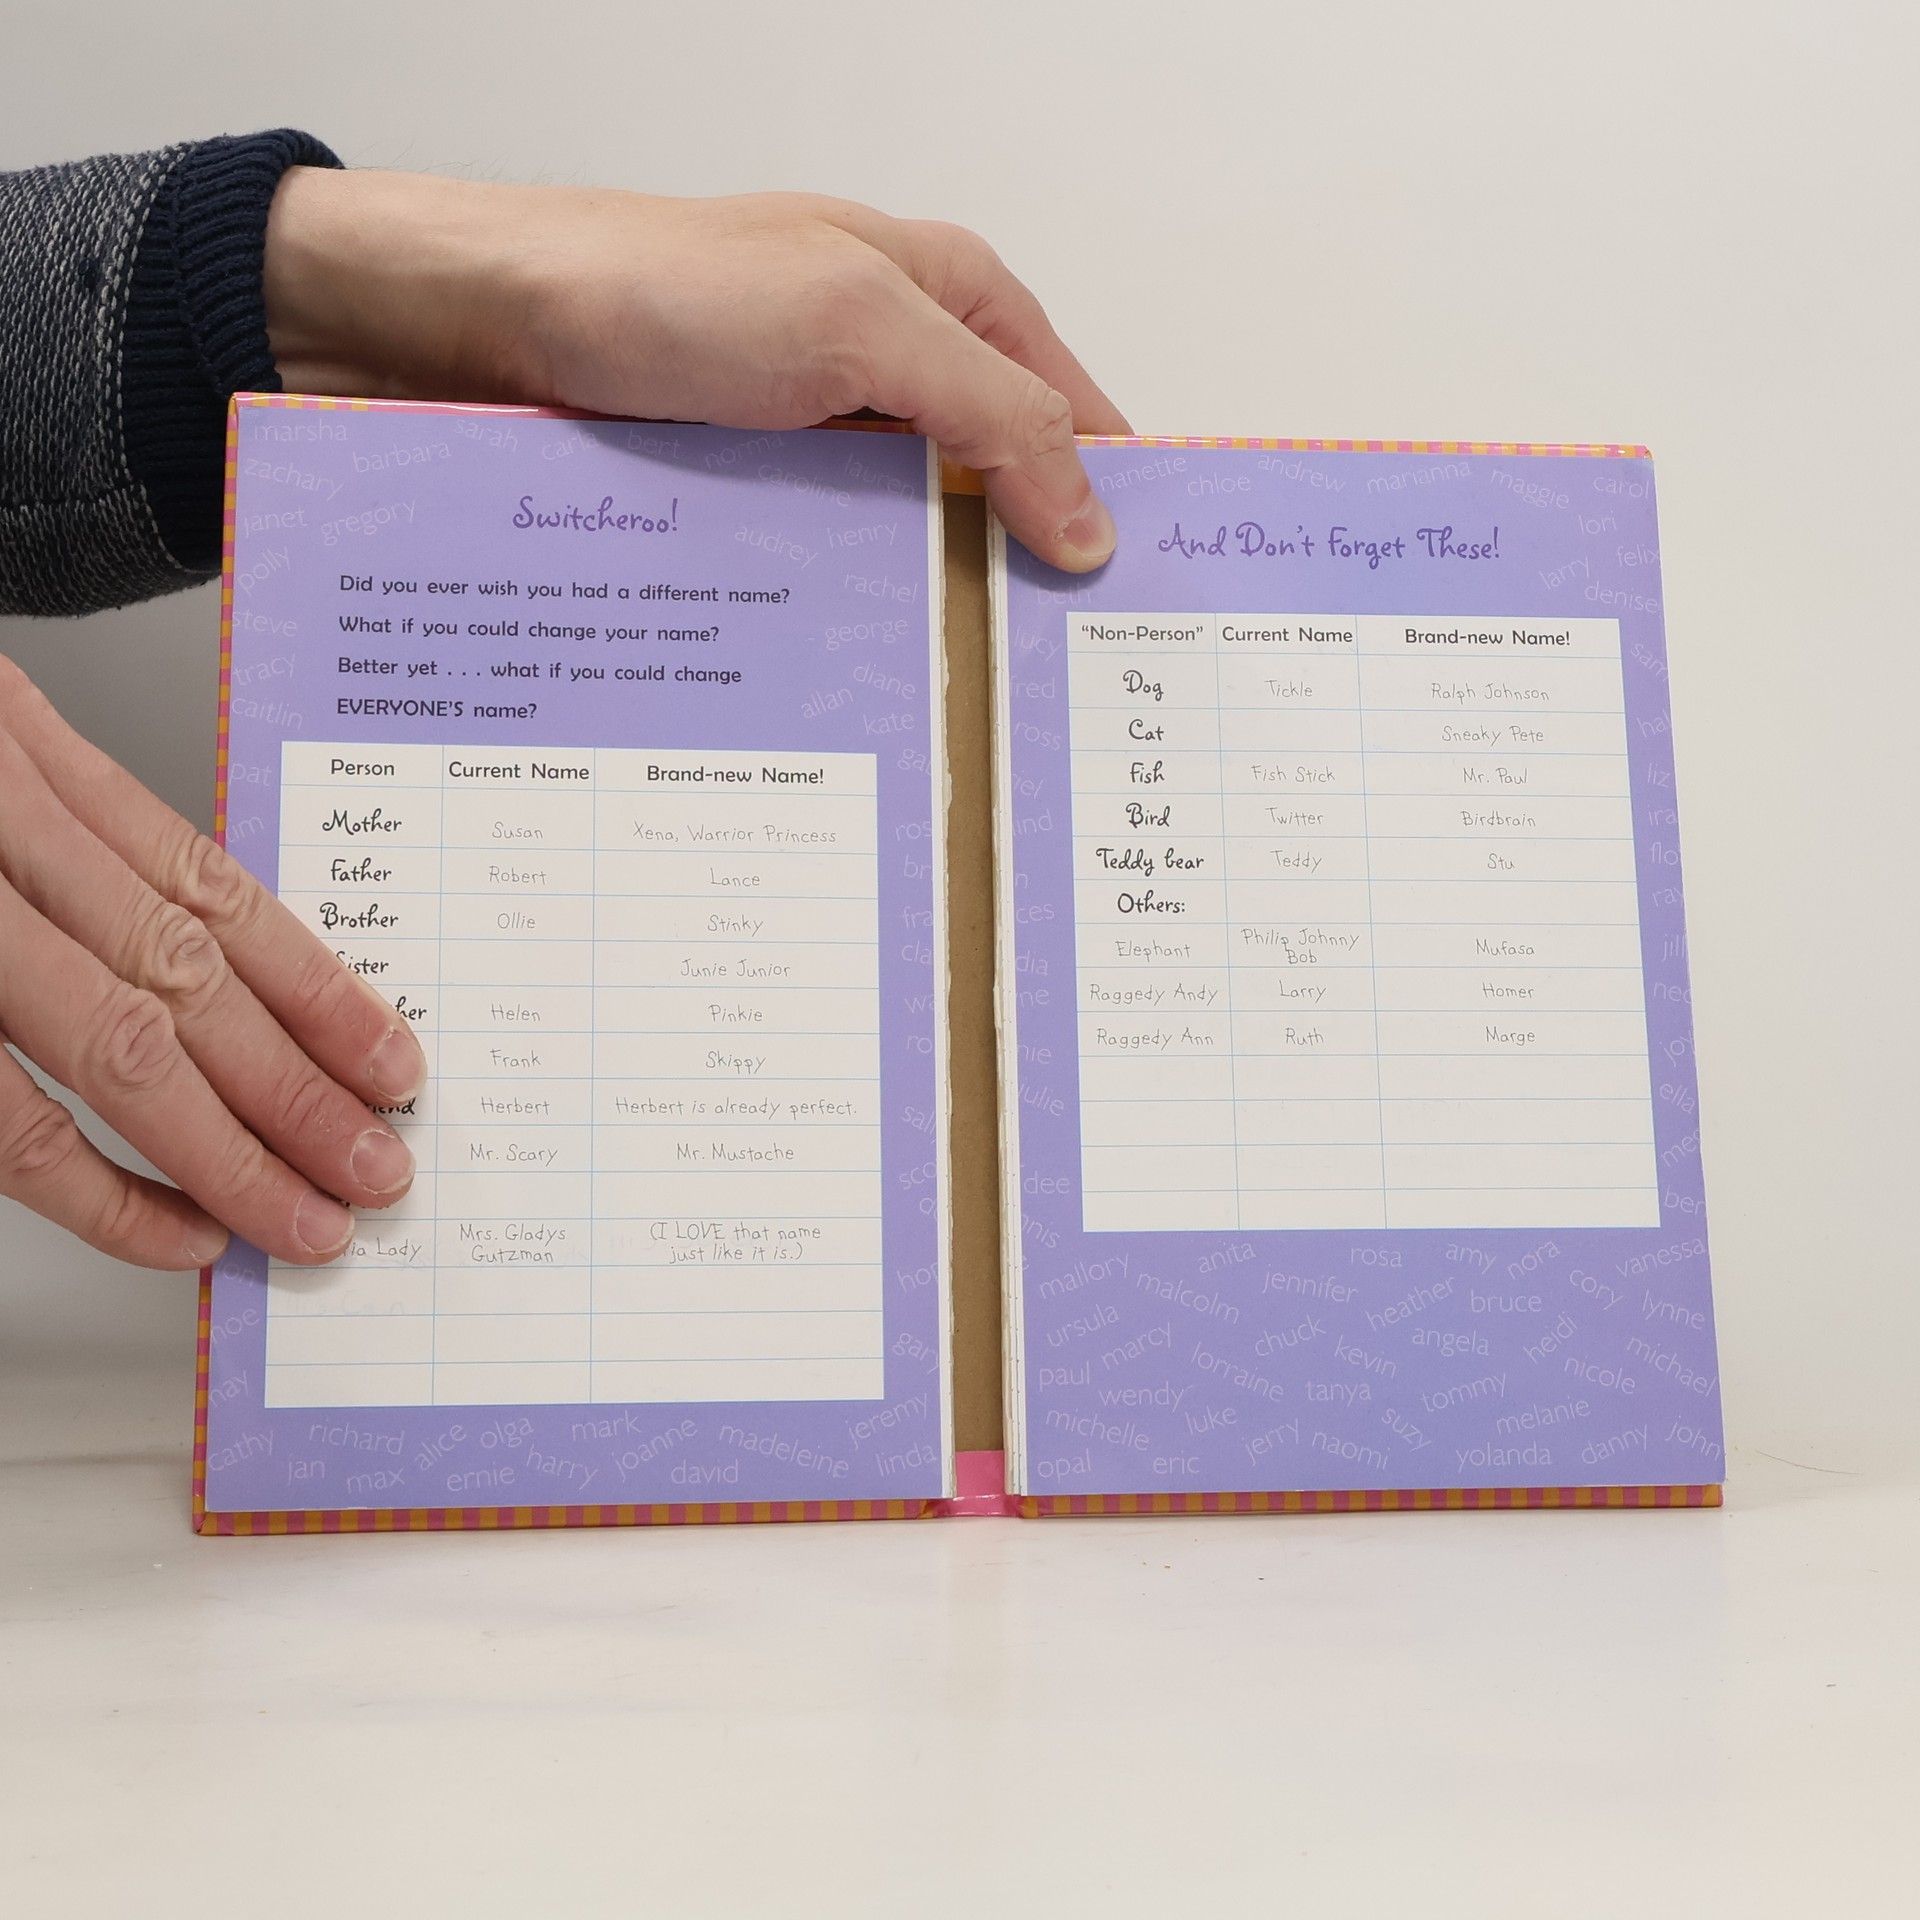 marsha
zachary
barbara
sarah
bert
norma
caroline
lauren
janet
gregory
audrey
henry
polly
rachel
steve
george
tracy
diane
allan
caitlin
kate
pat
Switcheroo!
Did you ever wish you had a different name?
What if you could change your name?
Better yet . . . what if you could change
EVERYONE'S name?
Person Current Name Brand-new Name!
Mother Susan Xena, Warrior Princess
Father Robert Lance
Brother Ollie Stinky
Sister Junie Junior
Helen Pinkie
Frank Skippy
Herbert Herbert is already perfect.
Mr. Scary Mr. Mustache
Lady Mrs. Gladys Gutzman (I LOVE that name just like it is.)
cathy
richard
alice
olga
mark
joanne
madeleine
jeremy
jan
max
ernie
harry
david
linda
nanette
chloe
andrew
marianna
maggie
carol
lori
felix
larry
denise
beth
lucy
fred
ross
And Don't Forget These!
"Non-Person" Current Name Brand-new Name!
Dog Tickle Ralph Johnson
Cat Sneaky Pete
Fish Fish Stick Mr. Paul
Bird Twitter Birdbrain
Teddy bear Teddy Stu
Others:
Elephant Philip Johnny Bob Mufasa
Raggedy Andy Larry Homer
Raggedy Ann Ruth Marge
liz
ella
julie
dee
anita
rosa
amy
nora
vanessa
mallory
malcolm
jennifer
heather
bruce
cory
lynne
ursula
marcy
chuck
kevin
angela
heidi
michael
paul
wendy
lorraine
tanya
tommy
nicole
michelle
luke
jerry
naomi
suzy
melanie
yolanda
danny
john
opal
eric